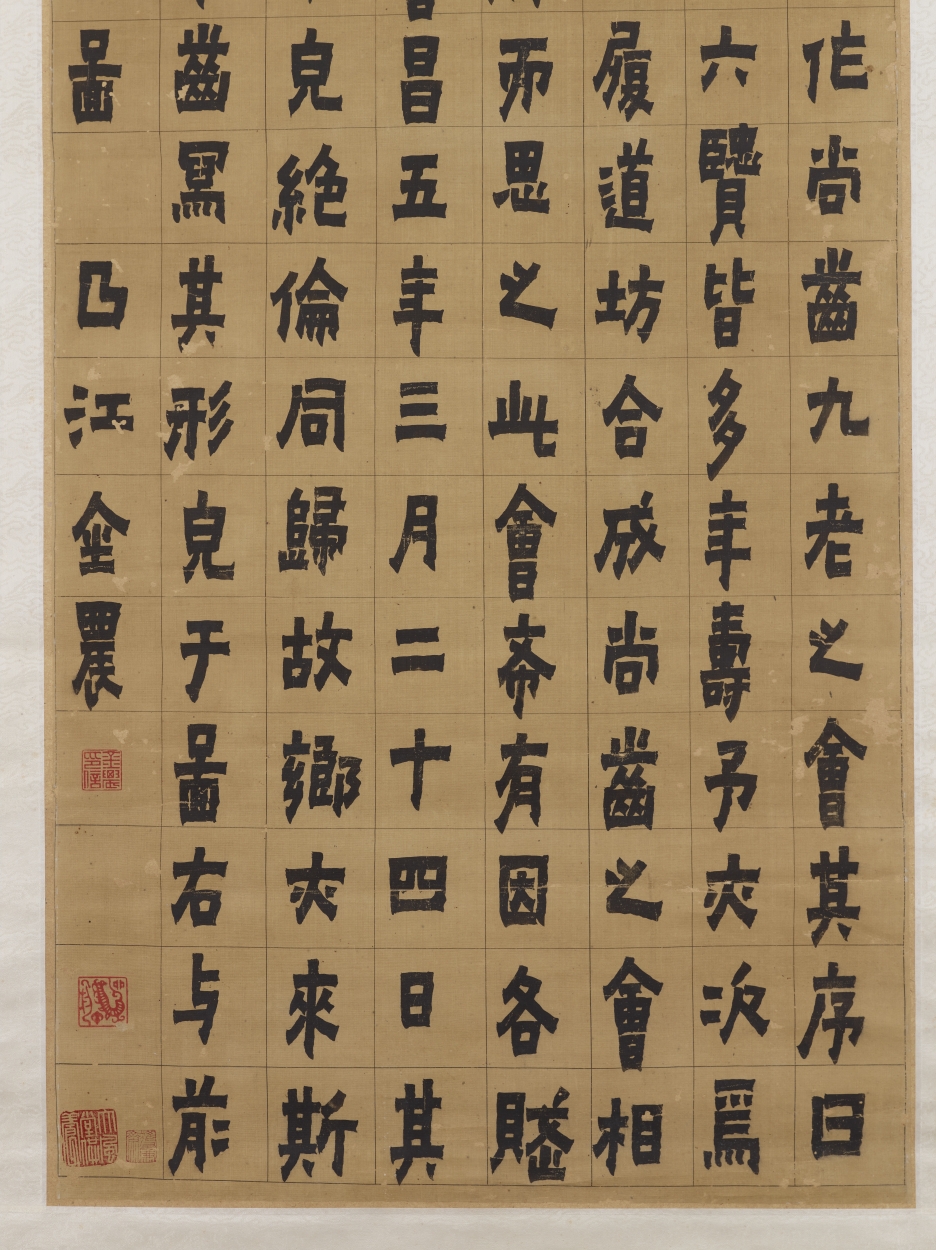 作尚齒九老之會其序曰
六賢皆多年壽予亦次焉
履道坊合成尚齒之會相
而思之此會希有因各賦
昌五年三月二十四日其
皃絕倫同歸故鄉亦來斯
齒寫其形皃于啚右与前
啚 曲江金農
金農印信